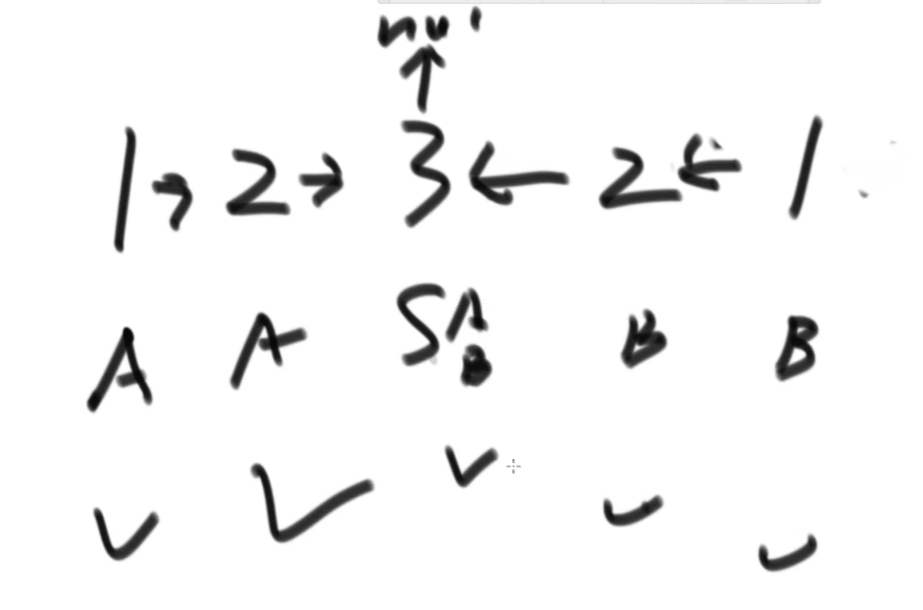 nul
↑
1 → 2 → 3 ← 2 ← 1
A A SA B B
B
✓ ✓ ✓ ✓ ✓